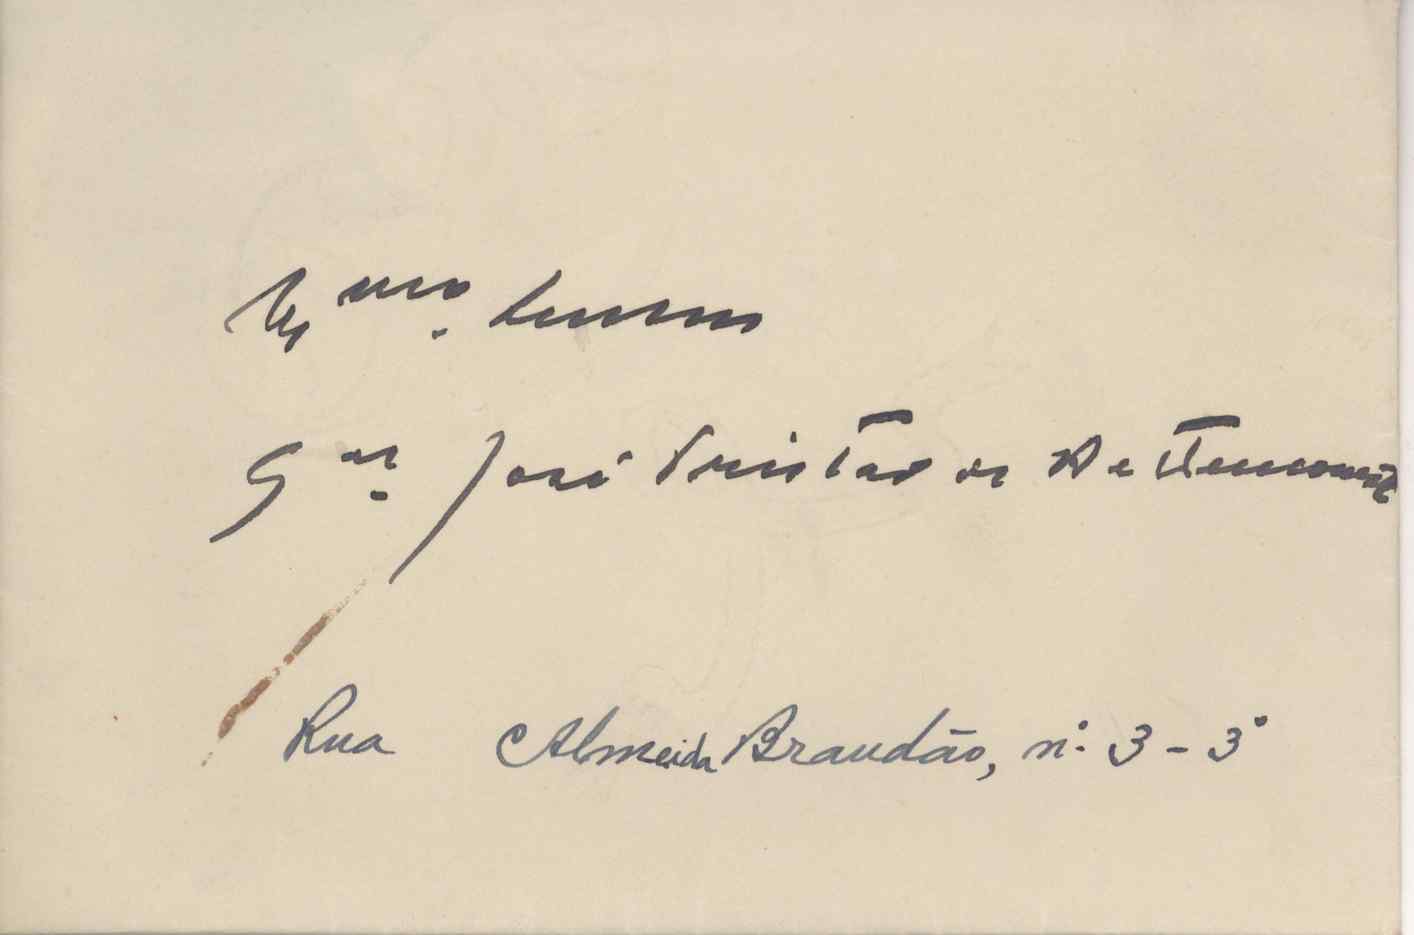 Exmo. Senhor
Snr. José Tristão de Bettencourt
Rua Almeida Brandão, nº 3 - 3º